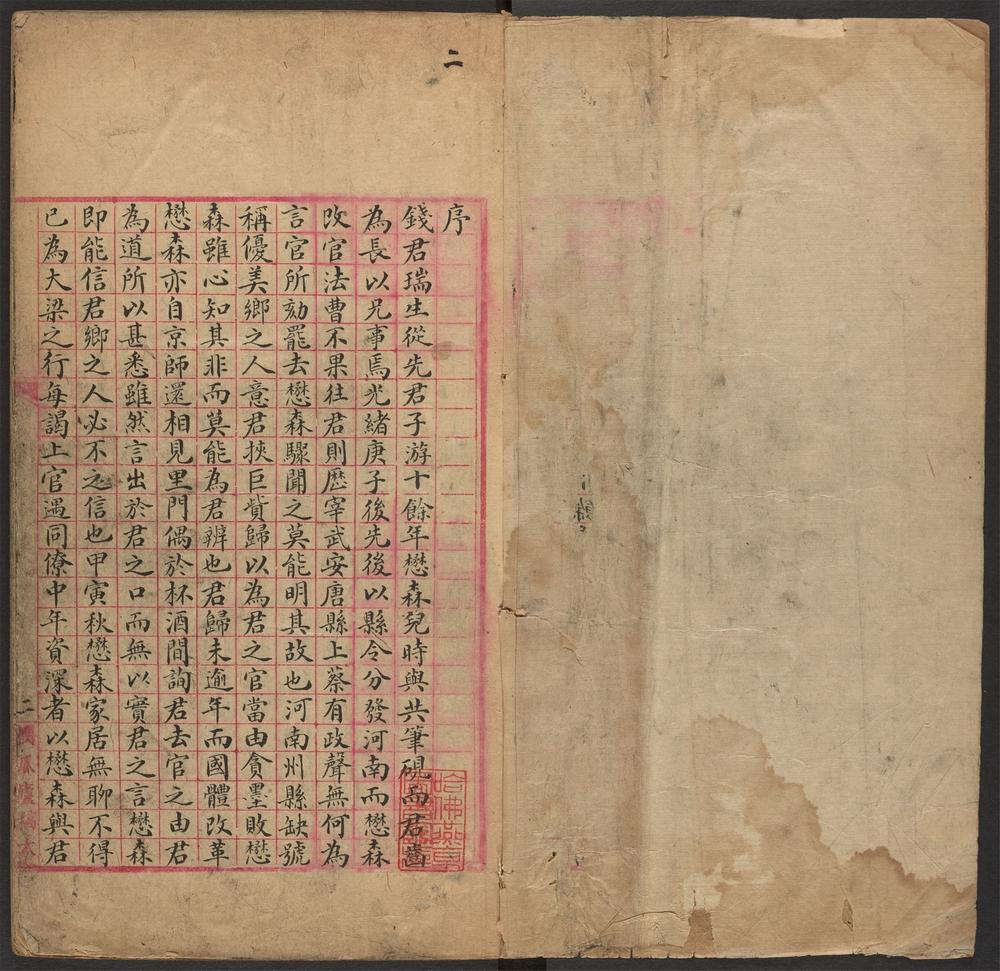 二
序
錢君瑞生從先君子游十餘年懋森兒時與共筆硯而君齒
為長以兄事焉光緒庚子後先後以縣令分發河南而懋森
改官法曹不果往君則歷宰武安唐縣上蔡有政聲無何為
言官所劾罷去懋森驟聞之莫能明其故也河南州縣缺號
稱優美鄉之人意君挾巨貲歸以為君之官當由貪墨敗懋
森雖心知其非而莫能為君辨也君歸未逾年而國體改革
懋森亦自京師還相見里門偶於杯酒間詢君去官之由君
為道所以甚悉雖然言出於君之口而無以實君之言懋森
即能信君鄉之人必不之信也甲寅秋懋森家居無聊不得
已為大梁之行每謁上官遇同僚中年資深者以懋森與君
二